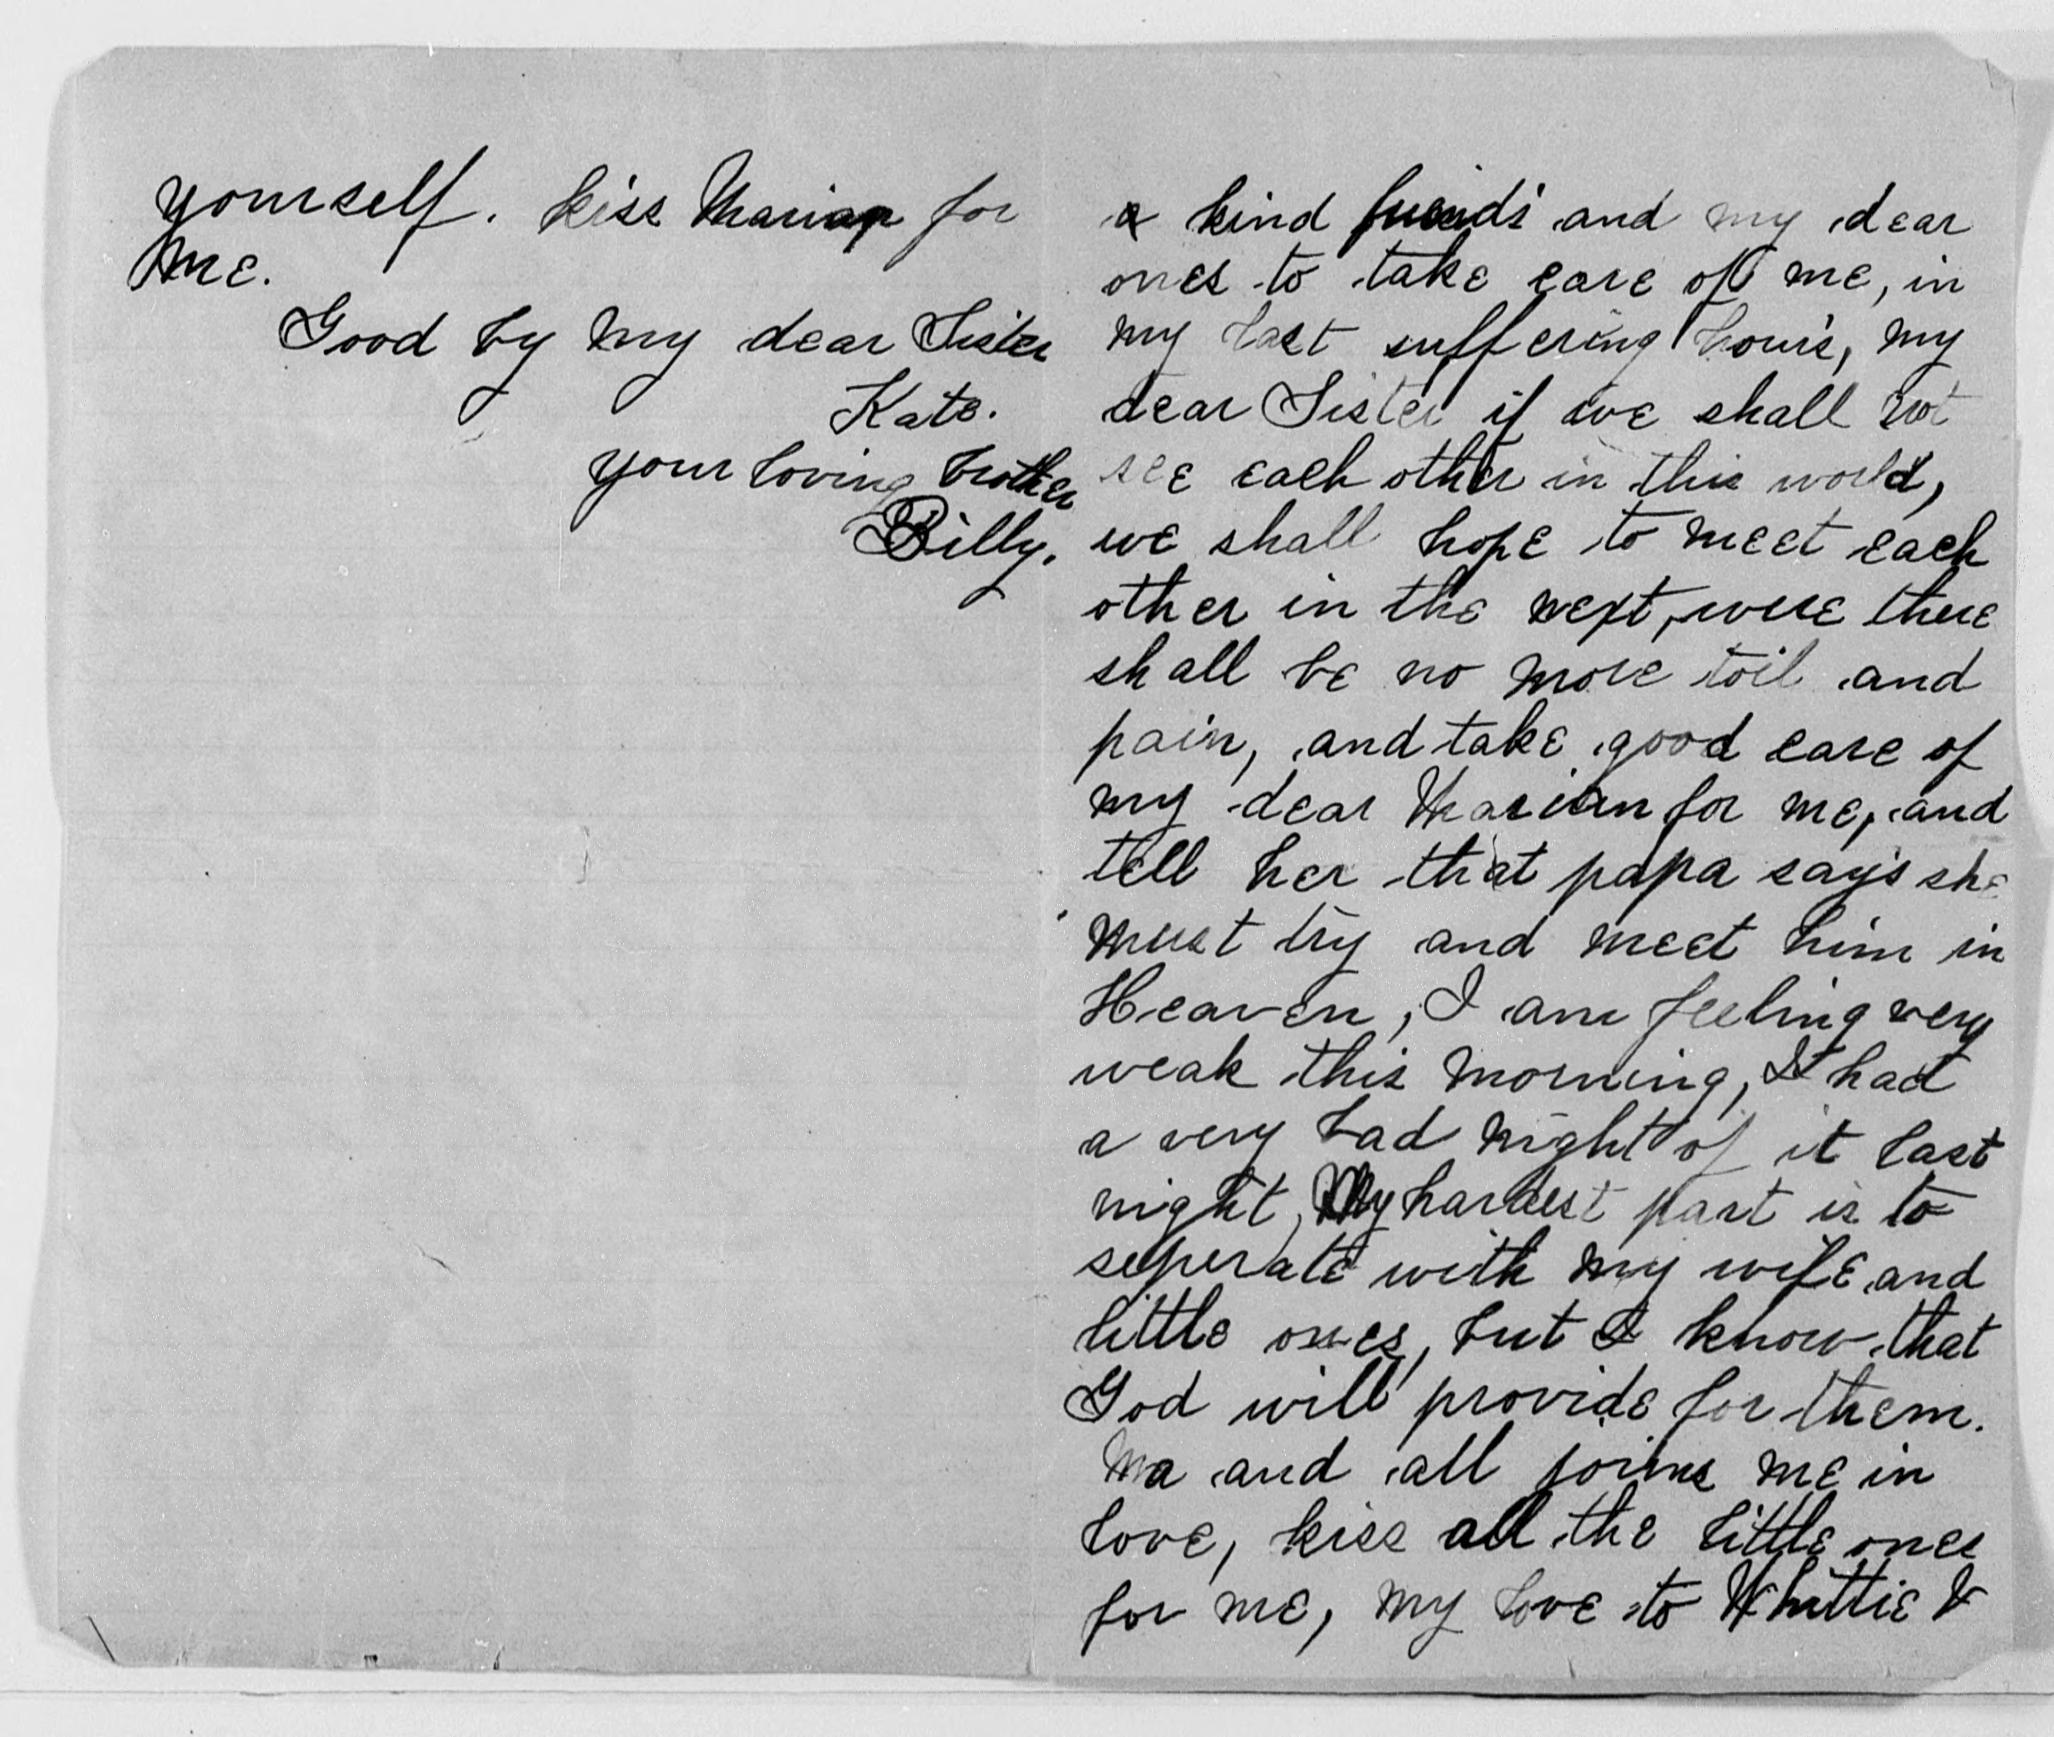 & kind friends and my dear
ones to take care of me, in
my last suffering hours, my
dear Sister if we shall not
see each other in this world,
we shall hope to meet each
other in the next, were there
shall be no more toil and
pain, and take good care of
my dear Marian for me, and
tell her that papa says she
must try and meet him in
Heaven, I am feeling very
weak this morning, I had
a very bad night of it last
night, My hardest part is to
seperate with my wife and
little ones, but I know that
God will provide for them.
Ma and all joins me in
love, kiss all the little ones
for me, my love to Whittie &
yourself. kiss Marian for
me.
Good by my dear Sister
Kate.
your loving brother
Billy.